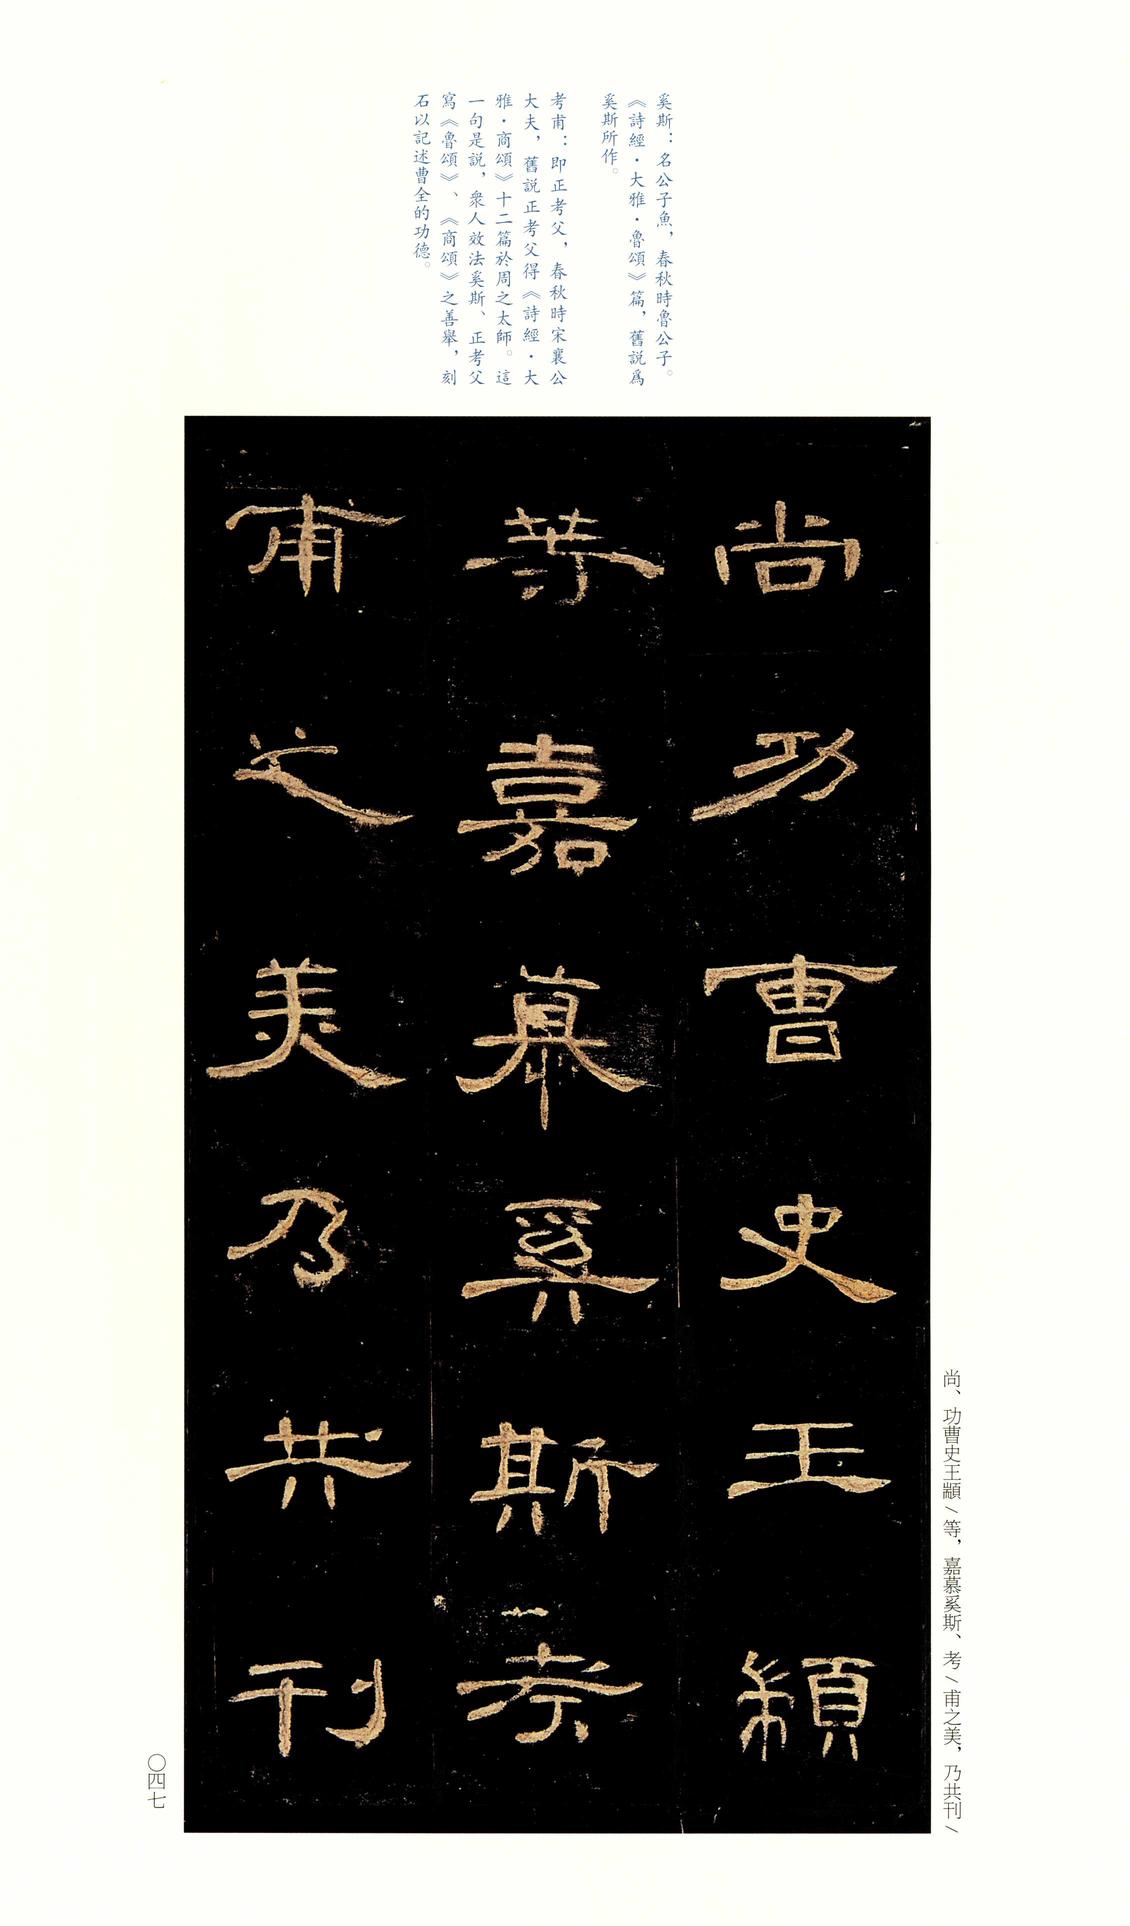 奚斯：名公子魚，春秋時魯公子。
《詩經·大雅·魯頌》篇，舊説爲
奚斯所作。
考甫：即正考父，春秋時宋襄公
大夫，舊説正考父得《詩經·大
雅·商頌》十二篇於周之太師。這
一句是説，衆人效法奚斯、正考父
寫《魯頌》、《商頌》之善舉，刻
石以記述曹全的功德。
尚功曹史王顓
等嘉慕奚斯考
甫之美乃共刊
尚、功曹史王顓／等，嘉慕奚斯、考／甫之美，乃共刊／
〇四七